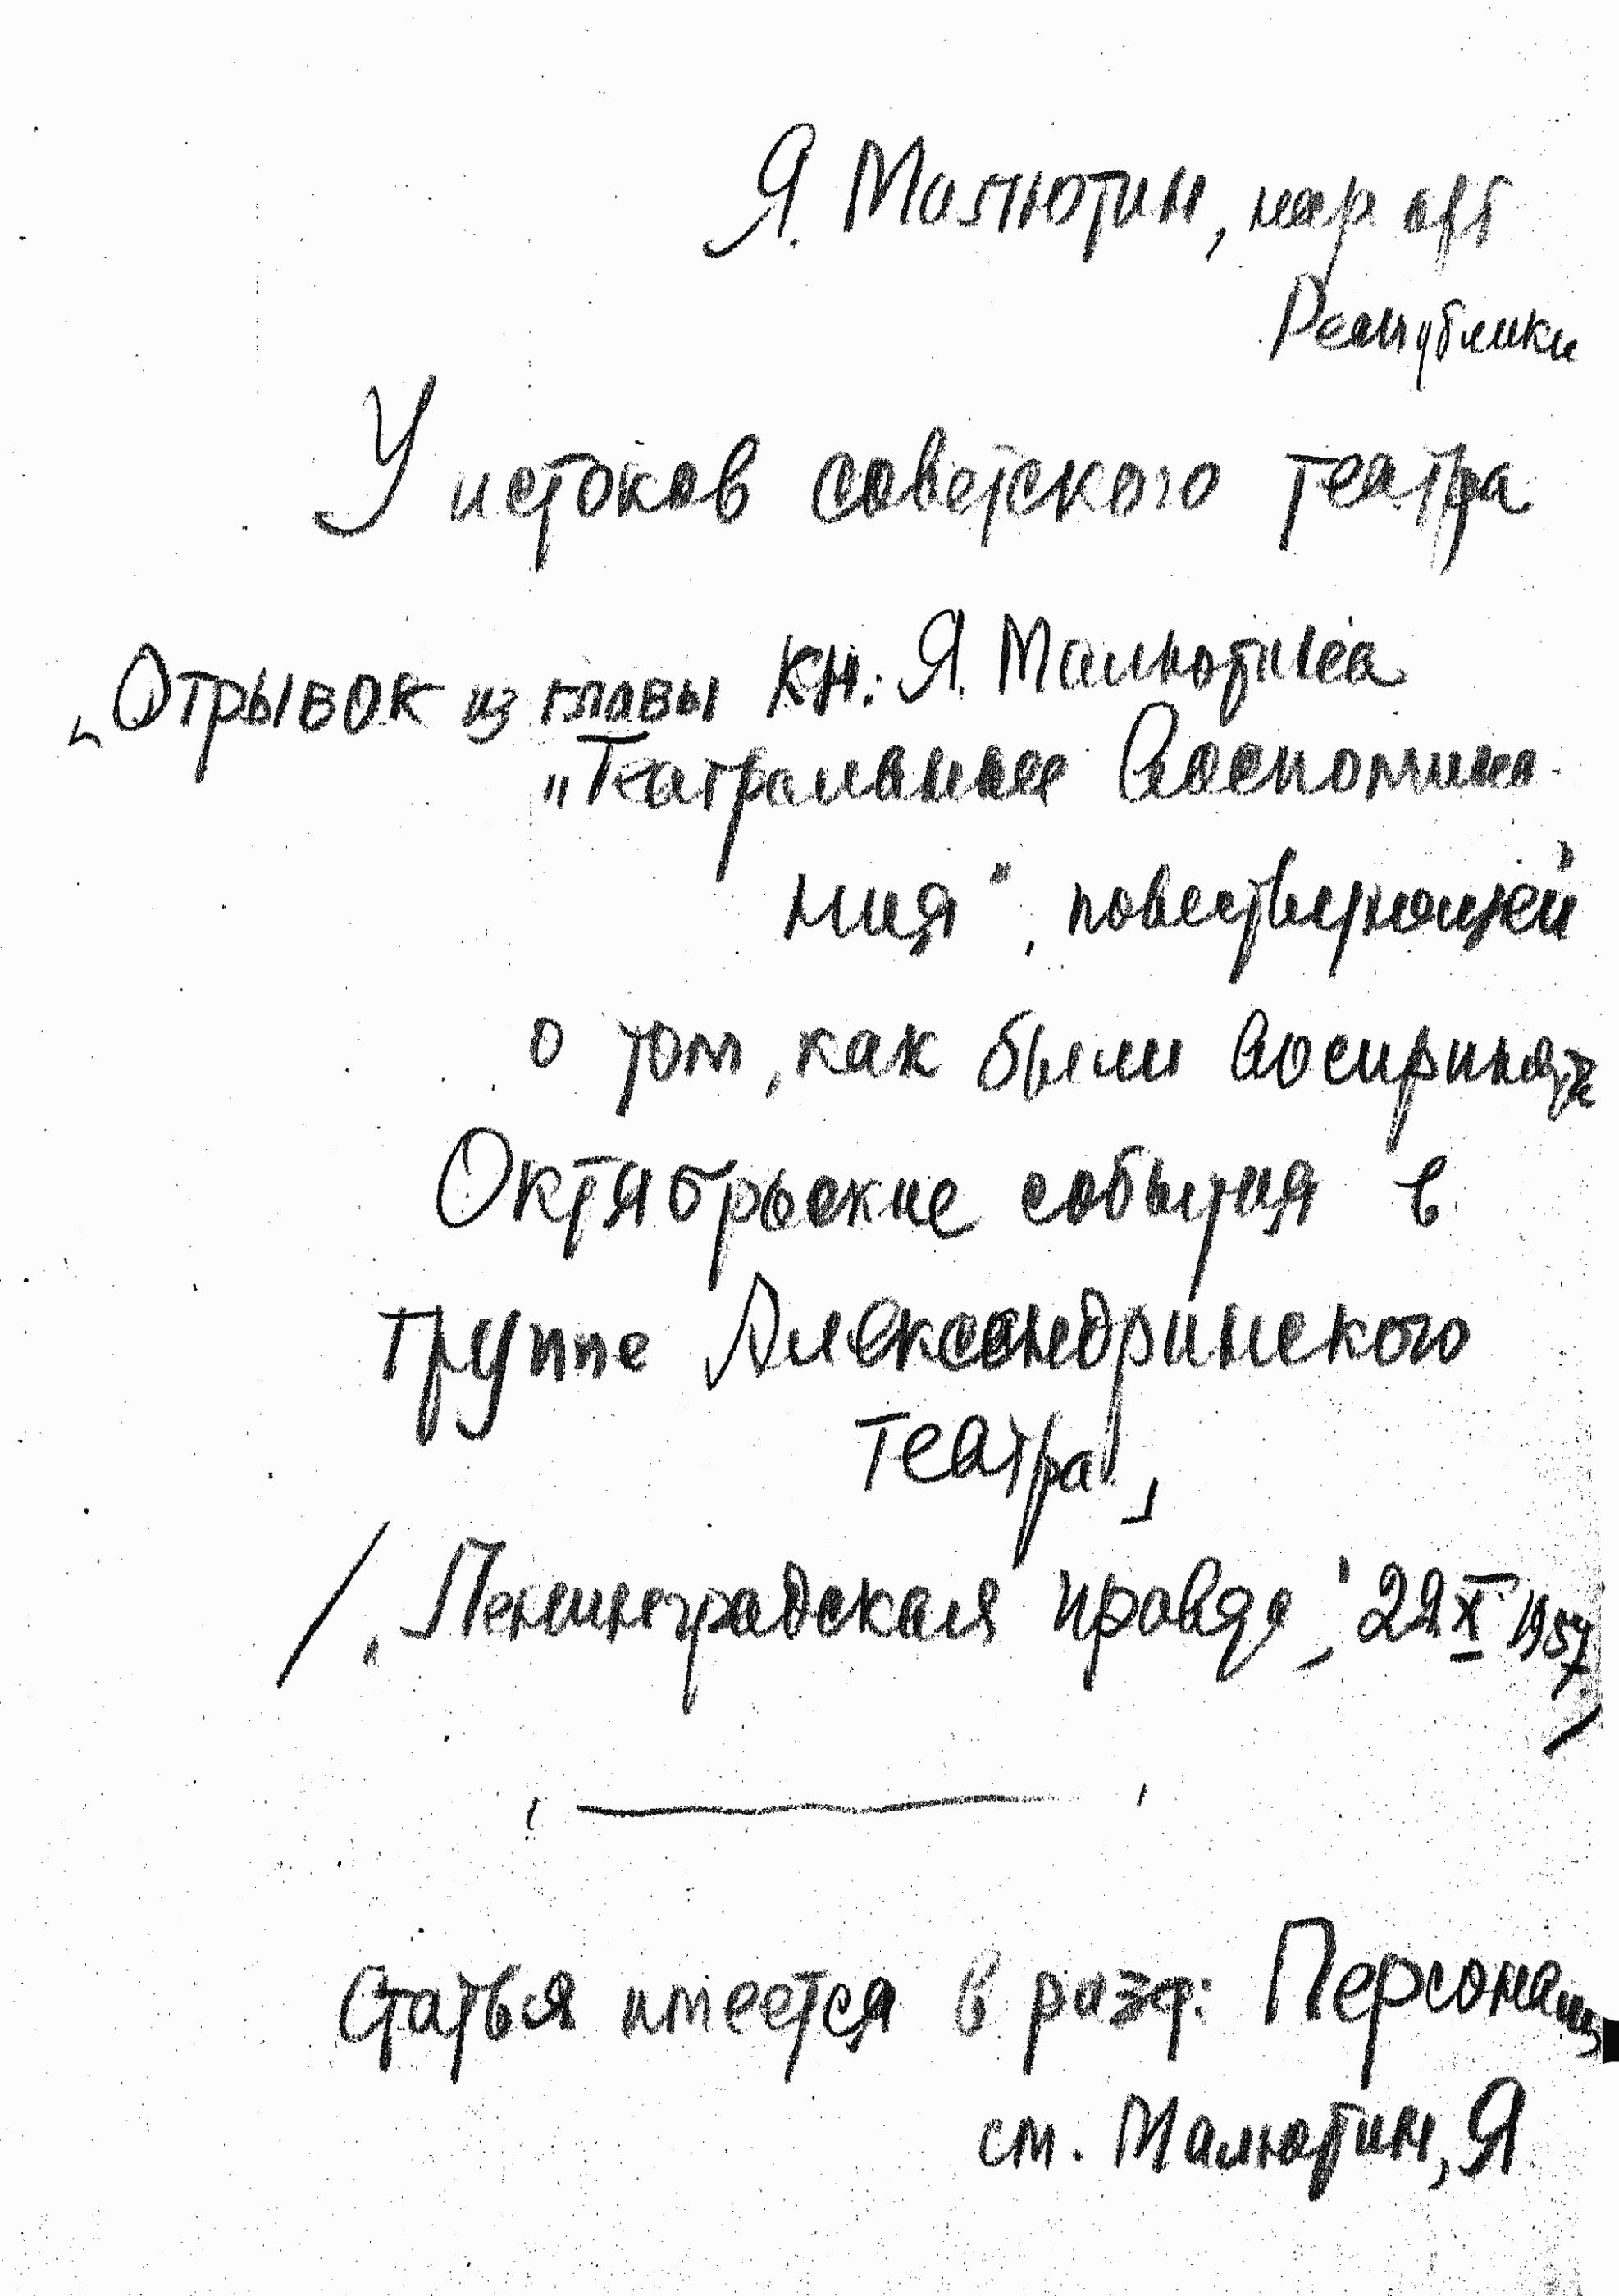 Я. Малютин, нар арт
Республики
У истоков советского театра
„Отрывок из главы кн: Я. Малютина
„Театральные Воспомина-
ния", повествующей
о том, как были восприняты
Октябрьские события в
труппе Александринского
театра"
/„Ленинградская правда", 22 X 1957/
Статья имеется в разд: Персоналия
см. Малютин, Я